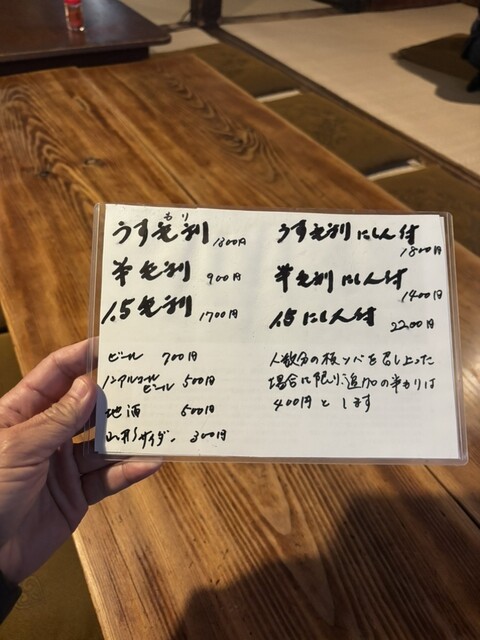 うす毛利 1300円
もり
半毛利 900円
1.5毛利 1700円
ビール 700円
ノンアルコールビール 500円
地酒 600円
山形サイダー 300円
うす毛利にしん付
1800円
半毛利にしん付
1400円
1.5にしん付 2200円
人数分の板ソバを召し上った
場合に限り追加の半もりは
400円とします